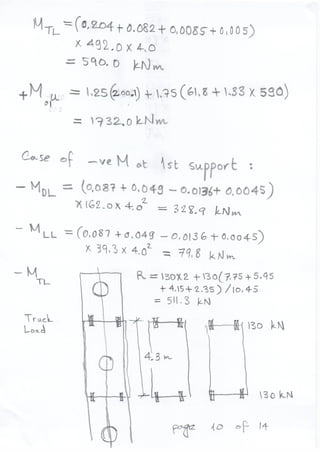 M_TL = (0.204 + 0.082 + 0.0085 + 0.005)
× 492.0 × 4.0
= 590.0 kNm
+M_μ = 1.25(200.1) + 1.75(61.8 + 1.33 × 590)
= 1732.0 kNm
Case of -ve M at 1st support :
- M_DL = (0.087 + 0.049 - 0.0136 + 0.0045)
×162.0 × 4.0² = 328.9 kNm
- M_LL = (0.087 + 0.049 - 0.0136 + 0.0045)
× 39.3 × 4.0² = 79.8 kNm
- M_TL
R = 130×2 + 130(7.75 + 5.95
+ 4.15 + 2.35) / 10.45
= 511.3 kN
Truck
Load
130 kN
4.3 m
130 kN
page 10 of 14